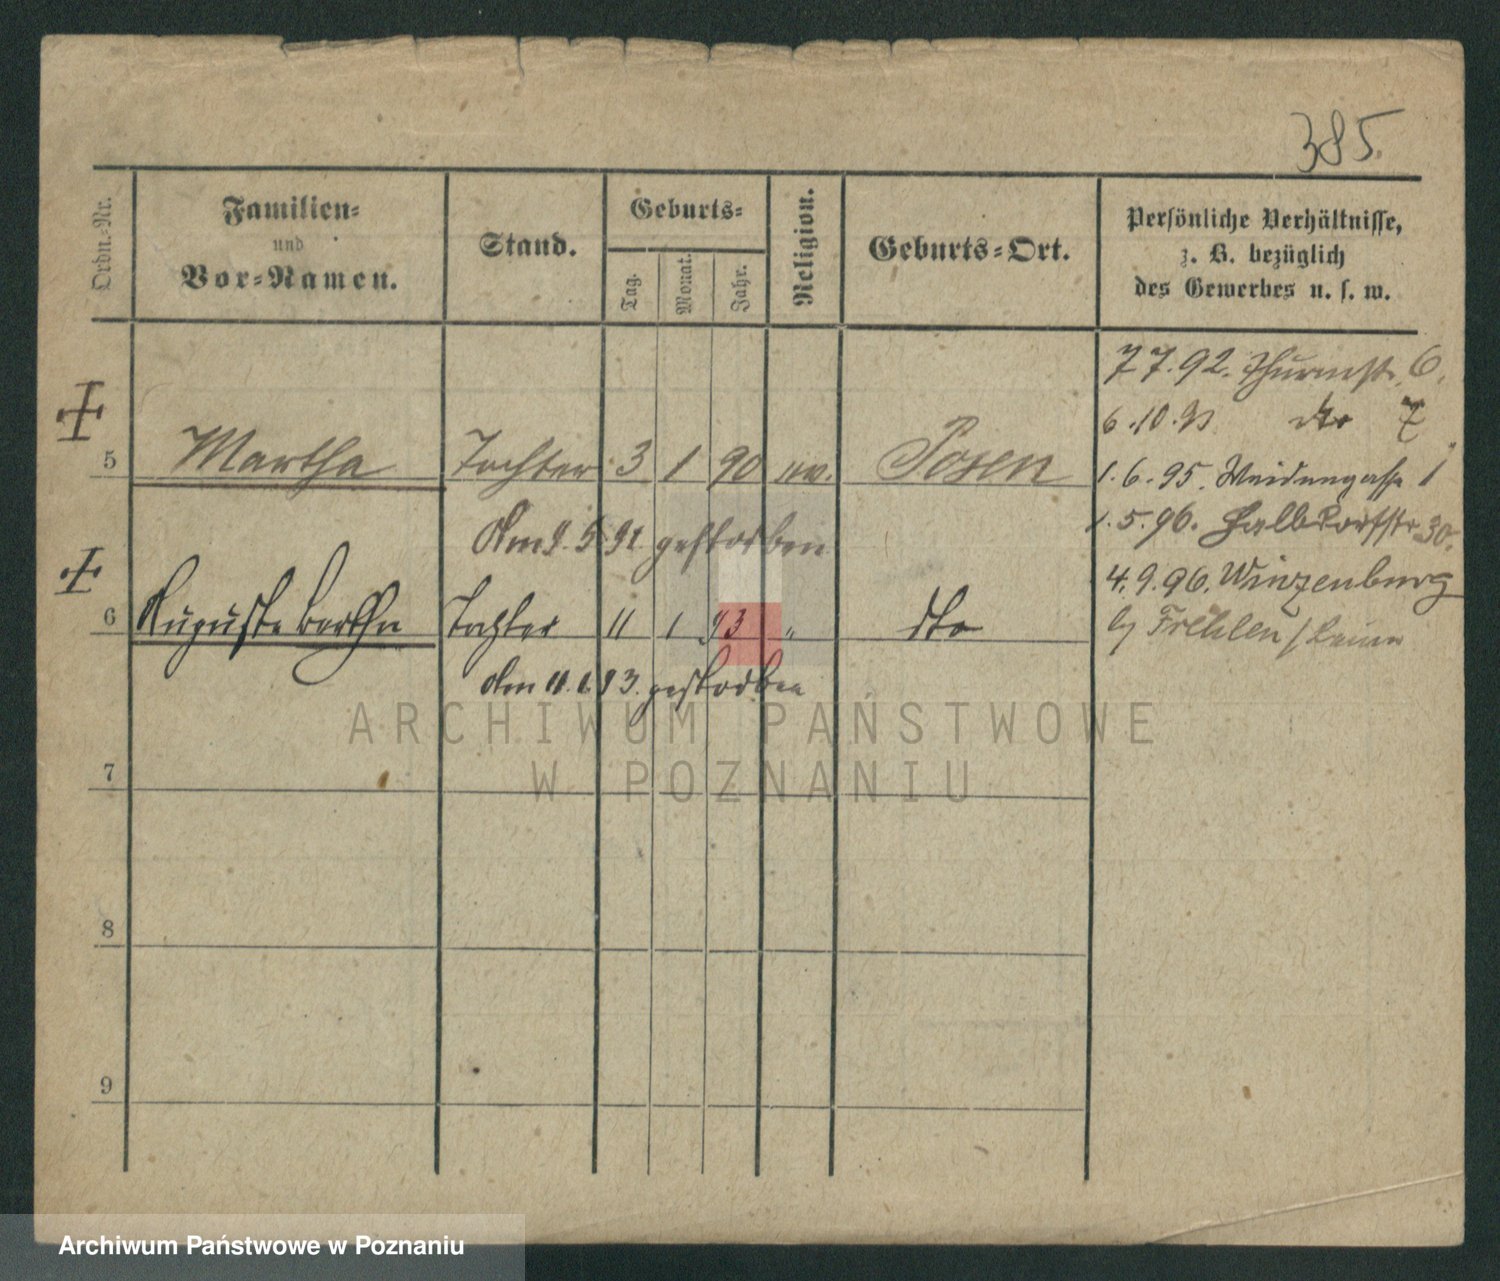 385.
Ordn.-Nr.
Familien-
und
Vor-Namen.
Stand.
Geburts-
Tag.
Monat.
Jahr.
Religion.
Geburts-Ort.
Persönliche Verhältnisse,
z. B. bezüglich
des Gewerbes u. s. w.
7 7. 92. Thurmstr. 6.
6. 10. dto 7
5 Martha Tochter 3 1 90 ev. Posen
1. 6. 95. Weidengasse 1
Am 9. 5 91 gestorben
1. 5. 96. Halbdorfstr. 30.
4. 9. 96. Winzenburg
6 Auguste Bertha Tochter 11 1 93 " dto
Am 11. 1. 93. gestorben
7
8
9
ARCHIWUM PAŃSTWOWE
W POZNANIU
Archiwum Państwowe w Poznaniu